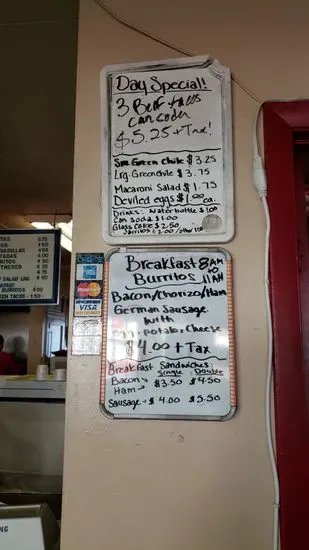 Day Special!
3 Beef tacos
can soda
$5.25 + Tax!
Sm. Green chile $3.25
Lrg. Greenchile $3.75
Macaroni Salad $1.75
Deviled eggs $1.00 ea.
Drinks: Water bottle $1.00
Can Soda $1.00
Glass Coke $2.50
Jarritos $2.00
Breakfast 8AM
to
Burritos 11AM
Bacon/Chorizo/Ham
German Sausage
with
egg, potato, cheese
$4.00 + Tax
Breakfast Sandwiches:
Single Double
Bacon $3.50 $4.50
Ham
Sausage $4.00 $5.50
MasterCard
VISA
TAS 4.75
TOS
SADILLAS 4.50
TADAS 4.00
RITOS 4.50
THERED 4.25
SALAD LRG
FAST
BURRITOS 4.00
EN TACOS 1.50
NG